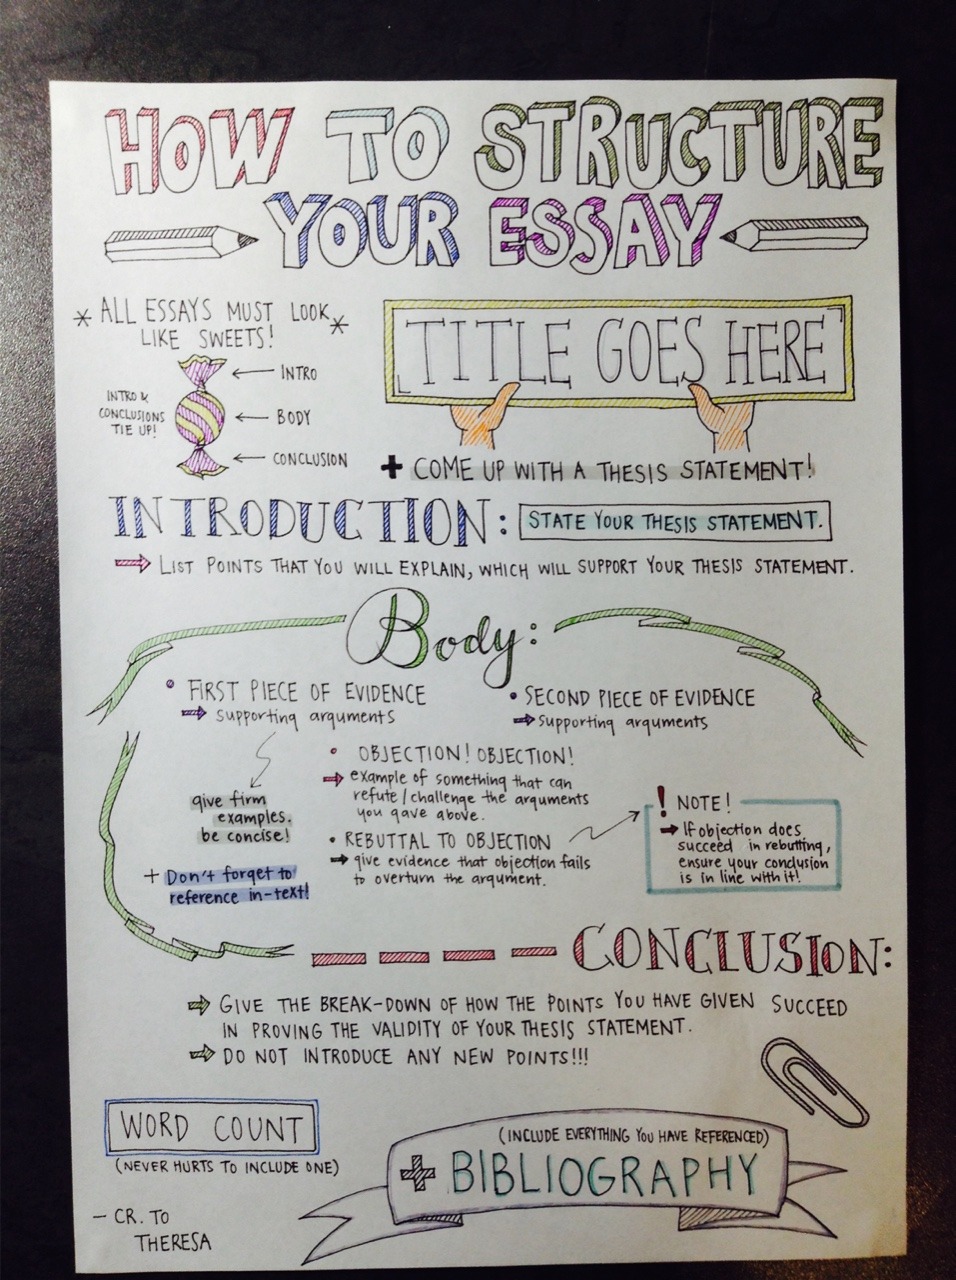 HOW TO STRUCTURE
YOUR ESSAY
* ALL ESSAYS MUST LOOK *
LIKE SWEETS!
INTRO
INTRO &
CONCLUSIONS
TIE UP!
BODY
CONCLUSION
TITLE GOES HERE
+ COME UP WITH A THESIS STATEMENT!
INTRODUCTION: STATE YOUR THESIS STATEMENT.
→ LIST POINTS THAT YOU WILL EXPLAIN, WHICH WILL SUPPORT YOUR THESIS STATEMENT.
Body:
• FIRST PIECE OF EVIDENCE
→ supporting arguments
• SECOND PIECE OF EVIDENCE
→ supporting arguments
give firm
examples.
be concise!
+ Don't forget to
reference in-text!
• OBJECTION! OBJECTION!
→ example of something that can
refute/challenge the arguments
you gave above.
• REBUTTAL TO OBJECTION
→ give evidence that objection fails
to overturn the argument.
! NOTE!
→ If objection does
succeed in rebutting,
ensure your conclusion
is in line with it!
CONCLUSION:
→ GIVE THE BREAK-DOWN OF HOW THE POINTS YOU HAVE GIVEN SUCCEED
IN PROVING THE VALIDITY OF YOUR THESIS STATEMENT.
→ DO NOT INTRODUCE ANY NEW POINTS!!!
WORD COUNT
(NEVER HURTS TO INCLUDE ONE)
(INCLUDE EVERYTHING YOU HAVE REFERENCED)
+ BIBLIOGRAPHY
– CR. TO
THERESA